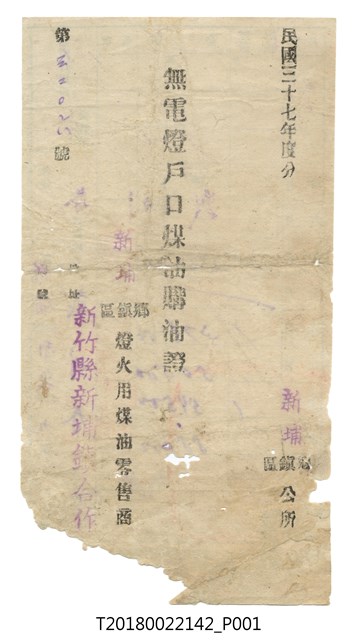 民國三十七年度分
新埔
鄉鎮區
公所
無電燈戶口煤油購油證
新埔
鄉鎮區
燈火用煤油零售商
新竹縣新埔鎮合作
地址
第
號
號
T20180022142_P001